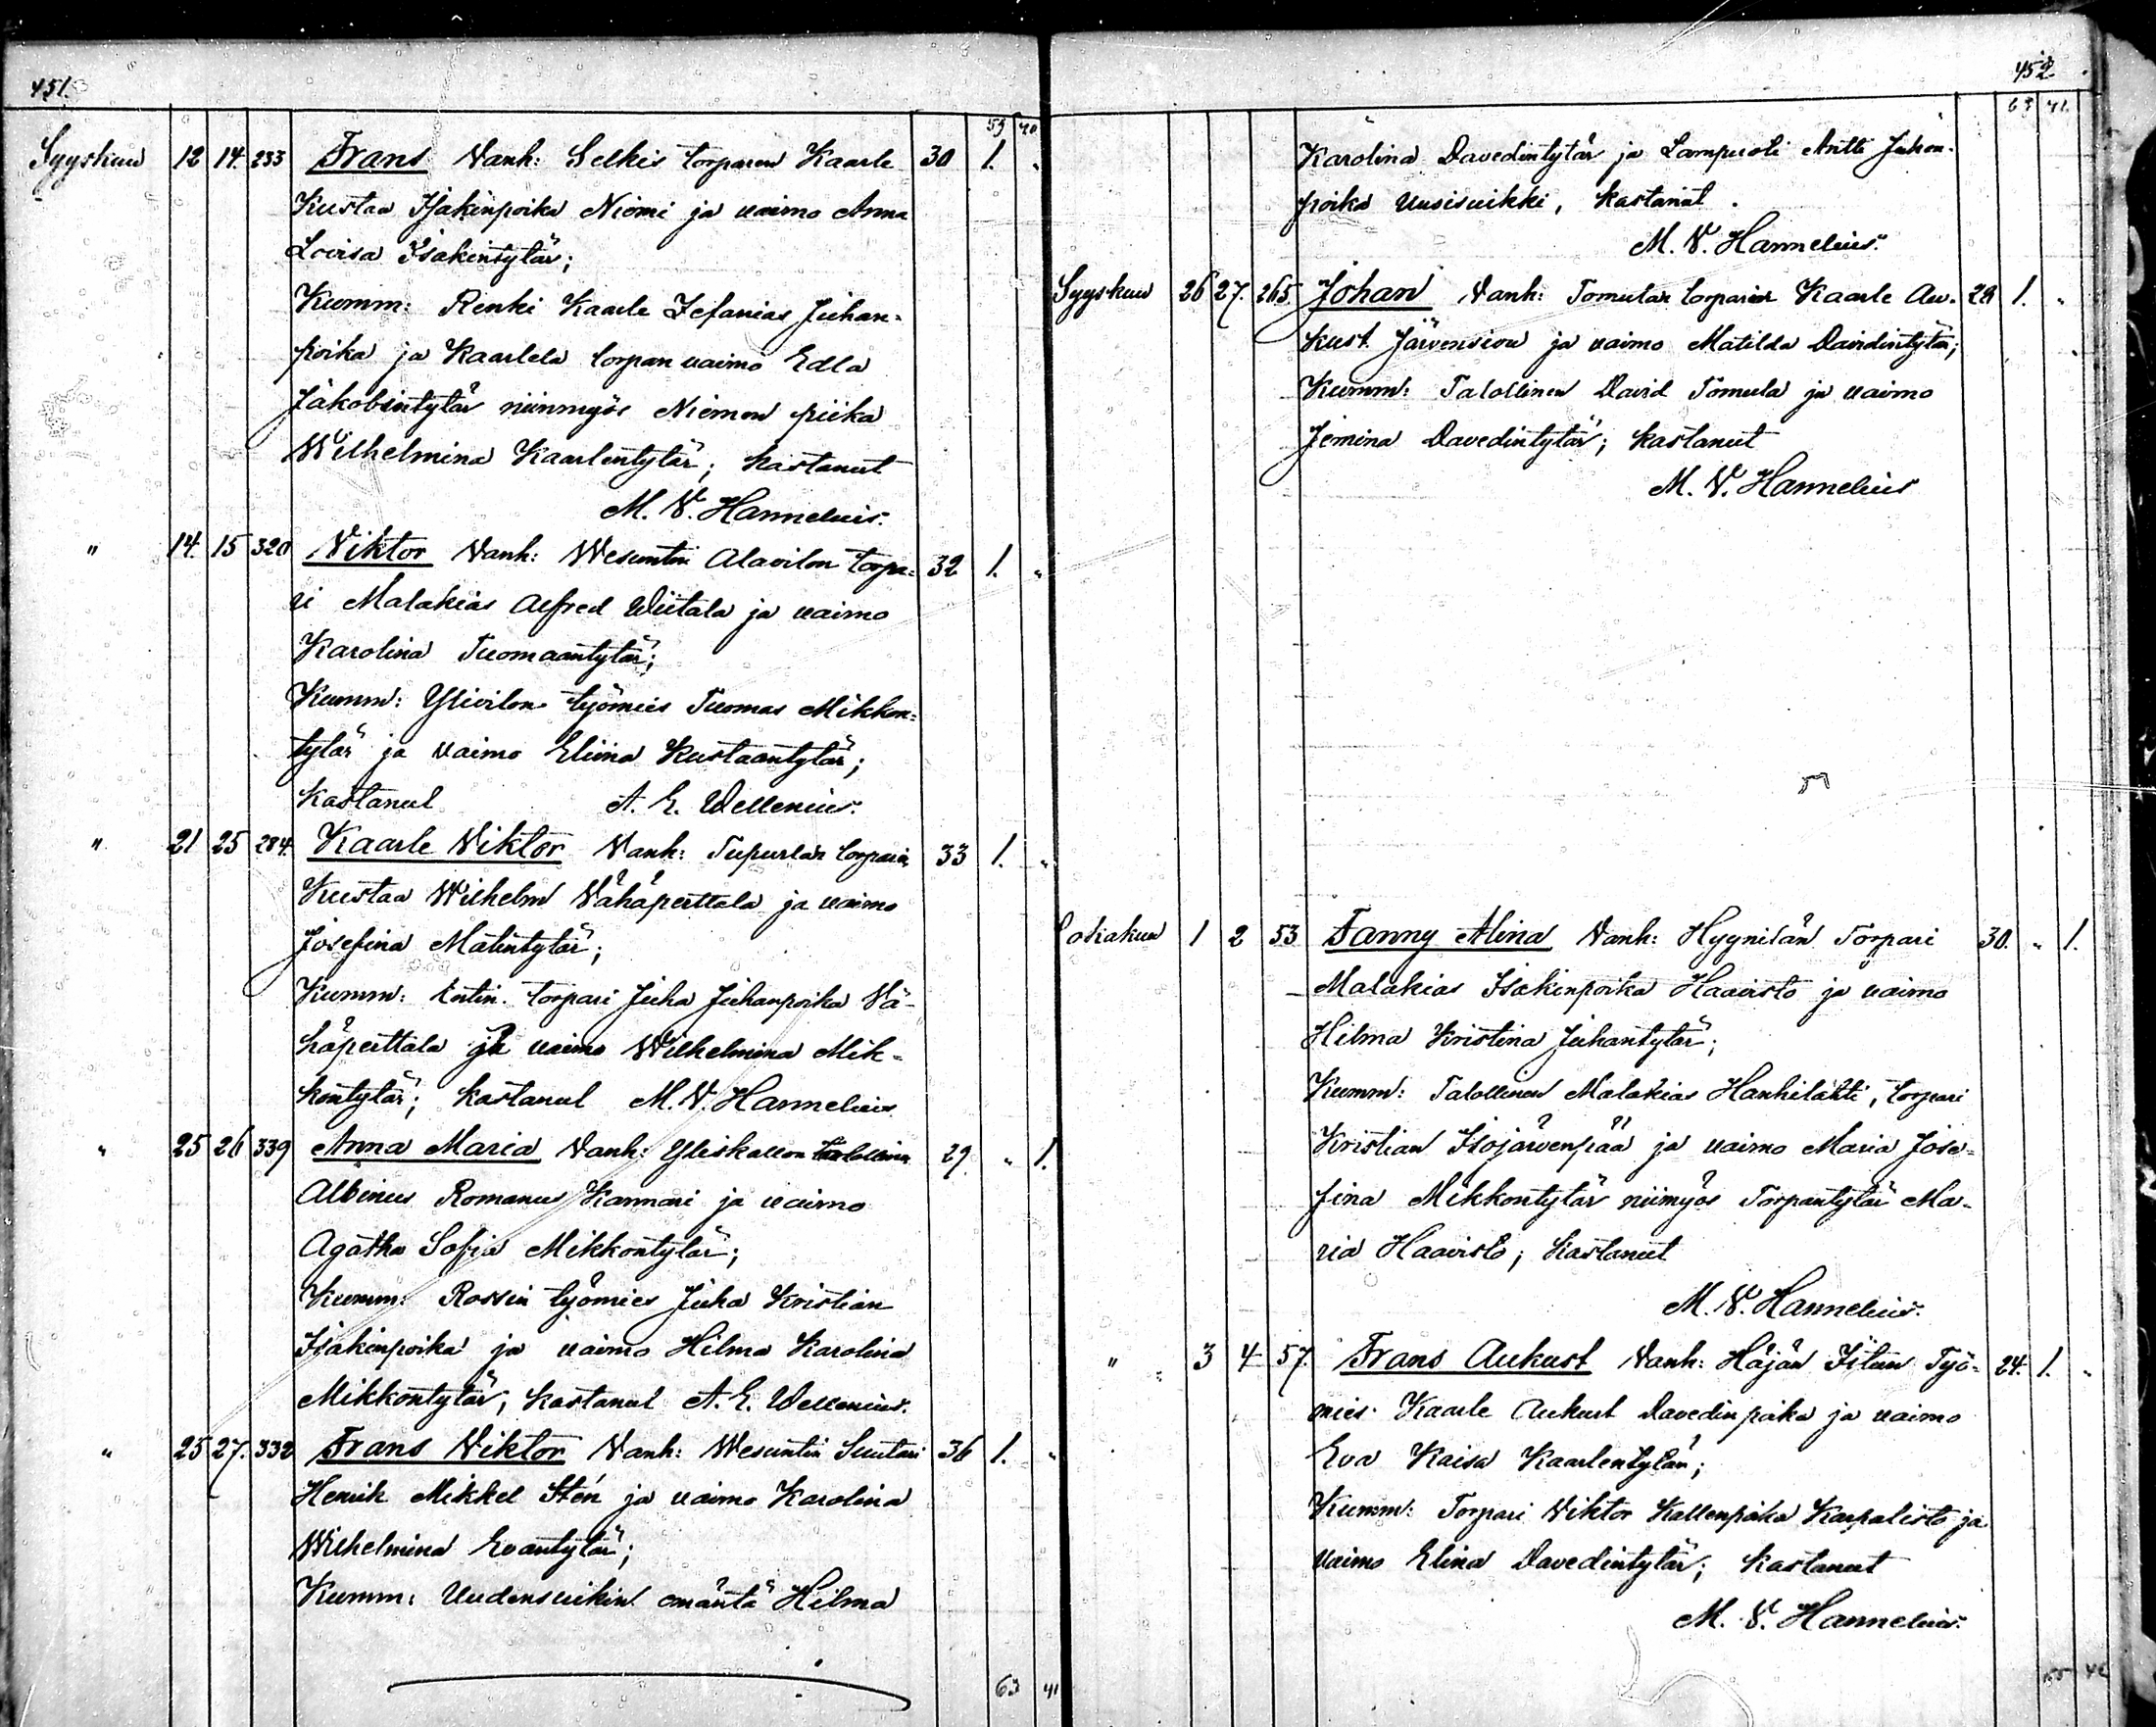 451.
59 40
Syyskuu 12 14. 233 Frans Vanh: Selkis torparin Kaarle 30 1. "
Kustaa Isakinpoika Niemi ja vaimo Anna
Lovisa Isakintytär;
Kumm: Renki Kaarle Sefanias Juhan-
poika ja Kaarlela torpan vaimo Edla
Jakobintytär niinmyös Niemen piika
Wilhelmina Kaarlentytär; kastanut
M. V. Hannelius.
" 14. 15 320 Viktor Vanh: Wesuntin Alavilon torpa- 32 1. "
ri Malakias Alfred Wiitala ja vaimo
Karolina Tuomaantytär;
Kumm: Ylivilon työmies Tuomas Mikkon-
tytär ja vaimo Eliina Kustaantytär;
kastanut A. E. Wellenius.
" 21 25 284. Kaarle Viktor Vanh: Tupurlan torpari 33 1. "
Kustaa Wilhelm Vähäperttala ja vaimo
Josefina Matintytär;
Kumm: entin. torpari Juha Juhanpoika Vä-
häperttala ja vaimo Wilhelmina Mik-
kontytär; kastanut M. V. Hannelius.
" 25 26 339 Anna Maria Vanh: Yliskallon talollinen 29 " 1.
Albinus Romanus Kannari ja vaimo
Agatha Sofia Mikkontytär;
Kumm: Rossin työmies Juha Kristian
Isakinpoika ja vaimo Hilma Karolina
Mikkontytär; kastanut A. E. Wellenius.
" 25 27. 332 Frans Viktor Vanh: Wesuntin Suutari 36 1. "
Henrik Mikkel Stén ja vaimo Karolina
Wilhelmina Evantytär;
Kumm: Uudensuikin emäntä Hilma
63 41
452
63 41.
Karolina Davedintytär ja Lampuoti Antti Juhan-
poika Uusisuikki, kastanut.
M. V. Hannelius.
Syyskuu 26 27. 265. Johan Vanh: Tomulan torpari Kaarle Au- 29 1. "
kust Järvensivu ja vaimo Matilda Davidintytär;
Kumm: Talollinen David Tomula ja vaimo
Jemina Davedintytär; kastanut
M. V. Hannelius
Lokakuu 1 2 53 Fanny Alina Vanh: Hyynilän Torpari 30. " 1.
Malakias Isakinpoika Haavisto ja vaimo
Hilma Kristina Juhantytär;
Kumm: Talollinen Malakias Hanhilahti, torpari
Kristian Isojärvenpää ja vaimo Maria Jose-
fina Mikkontytär niimyös Torpantytär Ma-
ria Haavisto; kastanut
M. V. Hannelius.
" 3 4 57. Frans Aukust Vanh: Häjän Työ- 24. 1. "
mies Kaarle Aukust Davedinpoika ja vaimo
Eva Kaisa Kaarlentytär;
Kumm: Torpari Viktor Kallenpoika Karpalisto ja
vaimo Elina Davedintytär; kastanut
M. V. Hannelius.